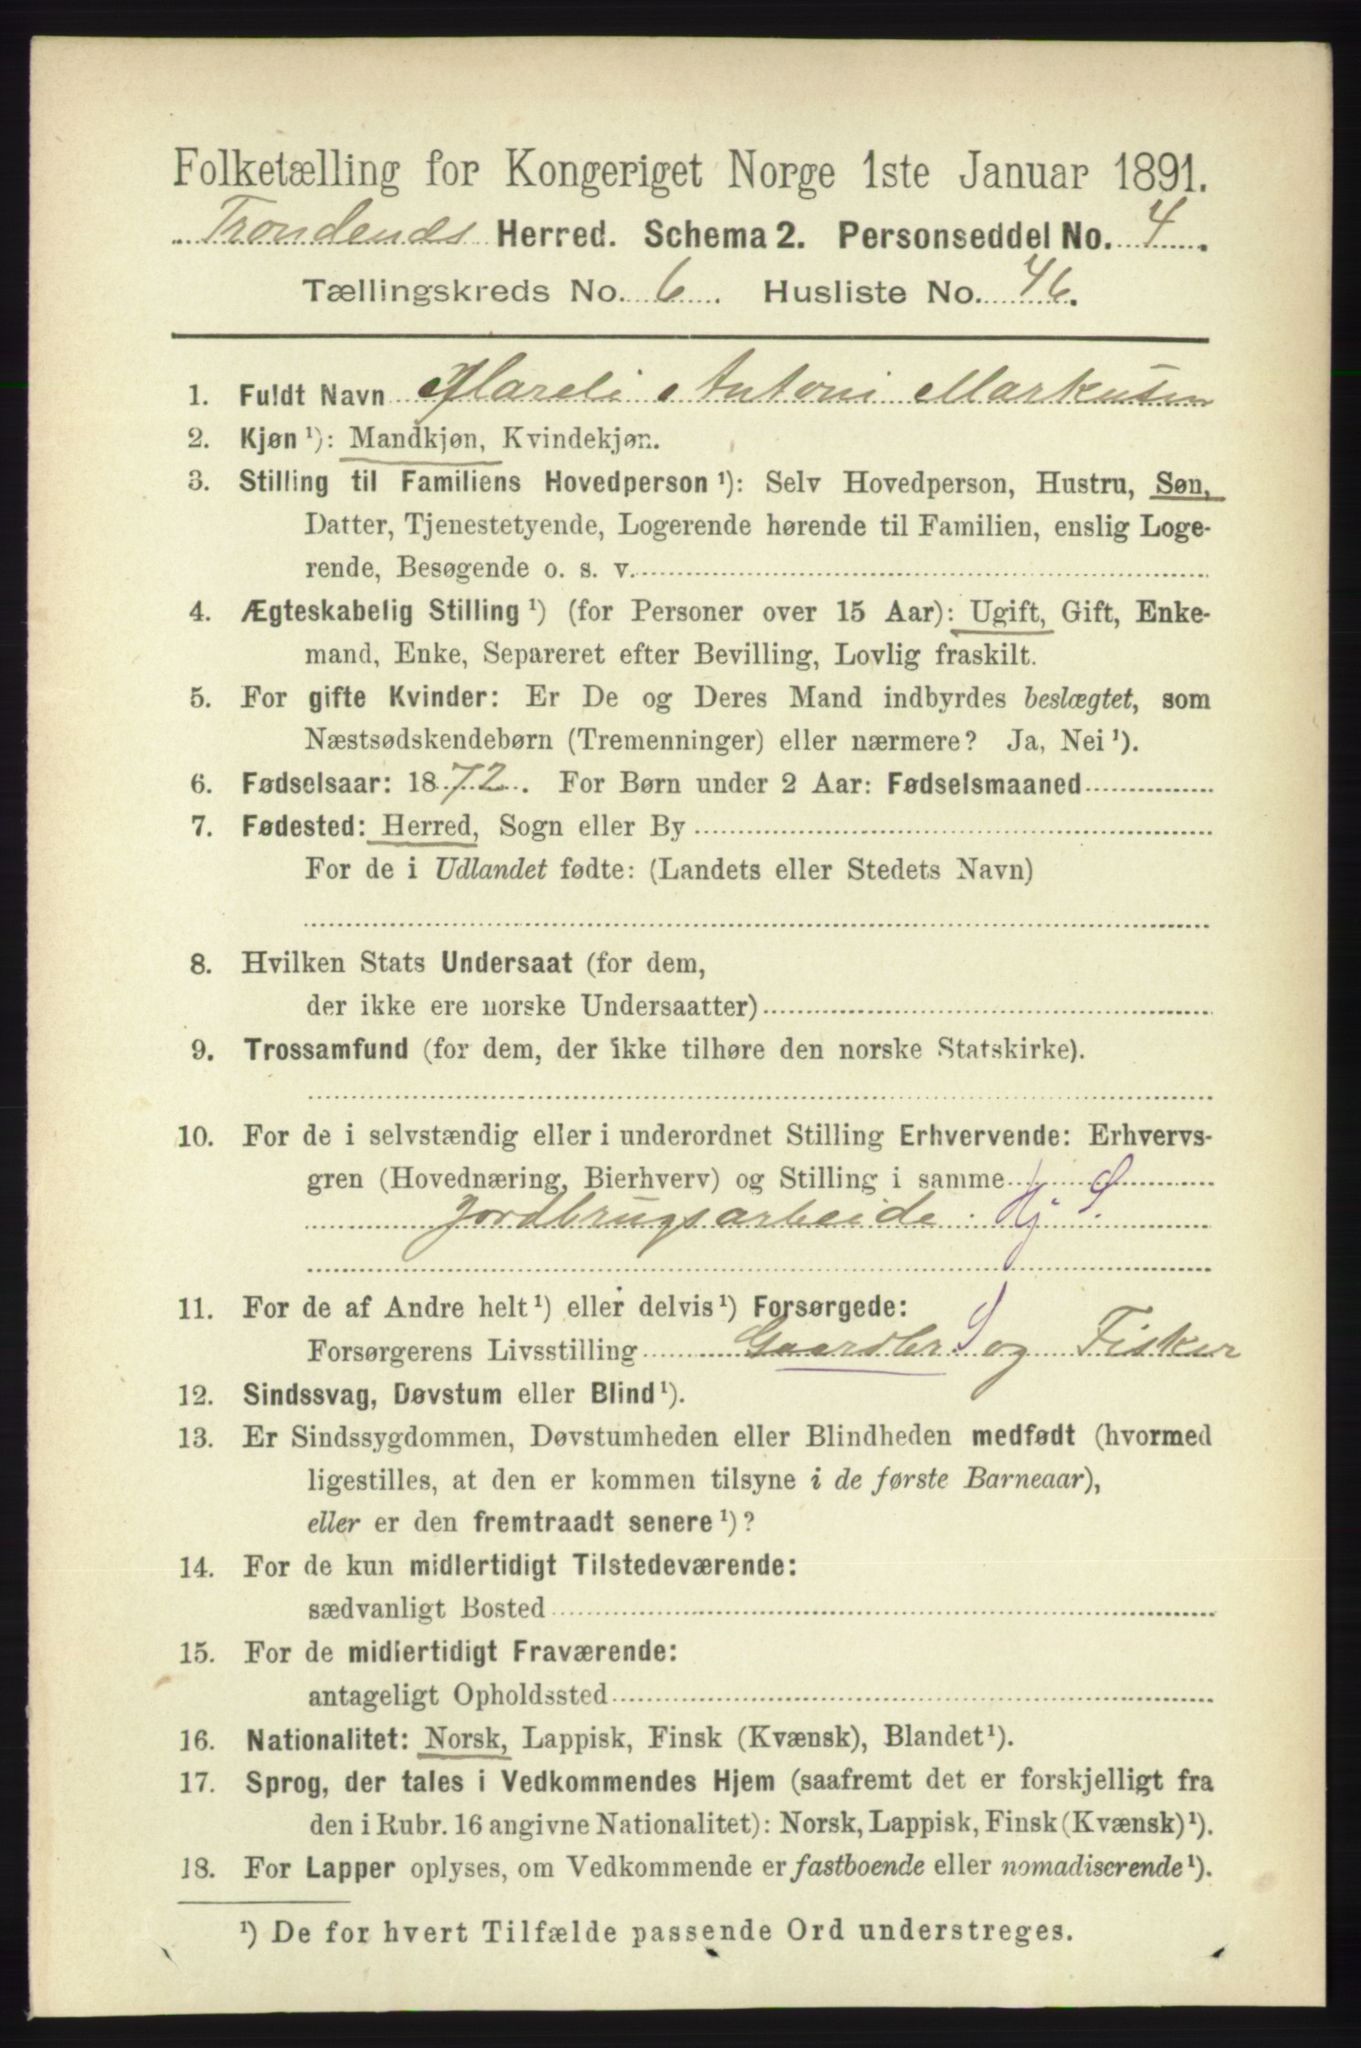 Folketælling for Kongeriget Norge 1ste Januar 1891.
Trondenæs Herred. Schema 2. Personseddel No. 4.
Tællingskreds No. 6. Husliste No. 46.
1. Fuldt Navn Hareli Antoni Markusen
2. Kjøn ¹): Mandkjøn, Kvindekjøn.
3. Stilling til Familiens Hovedperson ¹): Selv Hovedperson, Hustru, Søn,
Datter, Tjenestetyende, Logerende hørende til Familien, enslig Loge-
rende, Besøgende o. s. v.
4. Ægteskabelig Stilling ¹) (for Personer over 15 Aar): Ugift, Gift, Enke-
mand, Enke, Separeret efter Bevilling, Lovlig fraskilt.
5. For gifte Kvinder: Er De og Deres Mand indbyrdes beslægtet, som
Næstsødskendebørn (Tremenninger) eller nærmere? Ja, Nei ¹).
6. Fødselsaar: 1872. For Børn under 2 Aar: Fødselsmaaned
7. Fødested: Herred, Sogn eller By
For de i Udlandet fødte: (Landets eller Stedets Navn)
8. Hvilken Stats Undersaat (for dem,
der ikke ere norske Undersaatter)
9. Trossamfund (for dem, der ikke tilhøre den norske Statskirke).
10. For de i selvstændig eller i underordnet Stilling Erhvervende: Erhvervs-
gren (Hovednæring, Bierhverv) og Stilling i samme
Jordbrugsarbeide. Hj S.
11. For de af Andre helt ¹) eller delvis ¹) Forsørgede:
Forsørgerens Livsstilling Gaardbr S og Fisker
12. Sindssvag, Døvstum eller Blind ¹).
13. Er Sindssygdommen, Døvstumheden eller Blindheden medfødt (hvormed
ligestilles, at den er kommen tilsyne i de første Barneaar),
eller er den fremtraadt senere ¹)?
14. For de kun midlertidigt Tilstedeværende:
sædvanligt Bosted
15. For de midlertidigt Fraværende:
antageligt Opholdssted
16. Nationalitet: Norsk, Lappisk, Finsk (Kvænsk), Blandet ¹).
17. Sprog, der tales i Vedkommendes Hjem (saafremt det er forskjelligt fra
den i Rubr. 16 angivne Nationalitet): Norsk, Lappisk, Finsk (Kvænsk) ¹).
18. For Lapper oplyses, om Vedkommende er fastboende eller nomadiserende ¹).
¹) De for hvert Tilfælde passende Ord understreges.